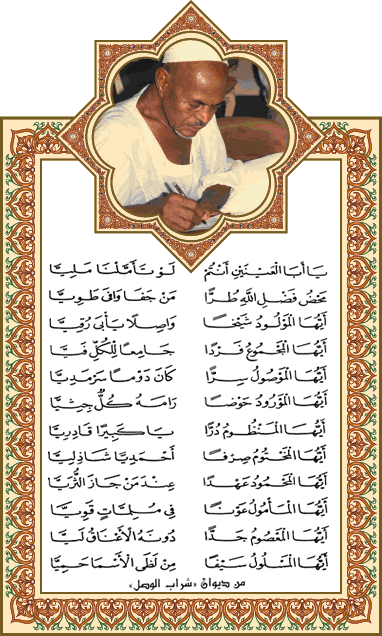 يَا أَبَا الْعَيْنَيْنِ أَنْتُمْ لَوْ تَأَمَّلْنَا مَلِيَّا
مَحْضُ فَضْلِ اللَّهِ طُرًّا مَنْ جَفَا وَافَى طَوِيَّا
أَيُّهَا الْمَوْلُودُ شَيْخًا وَاصِلًا يَأْبَى رُقِيَّا
أَيُّهَا الْمَجْمُوعُ فَرْدًا جَامِعًا لِلْكُلِّ فَيَّا
أَيُّهَا الْمَوْصُولُ سِرًّا كَانَ دَوْمًا سَرْمَدِيَّا
أَيُّهَا الْمَوْرُودُ حَوْضًا رَامَهُ كُلٌّ جِثِيَّا
أَيُّهَا الْمَنْظُومُ دُرًّا يَا كَبِيرًا قَادِرِيَّا
أَيُّهَا الْمَخْتُومُ صِرْفًا أَحْمَدِيًّا شَاذِلِيَّا
أَيُّهَا الْمَحْمُودُ عَهْدًا عِنْدَ مَنْ جَازَ الثُّرَيَّا
أَيُّهَا الْمَأْمُولُ عَوْنًا فِي مُلِمَّاتٍ قَوِيَّا
أَيُّهَا الْمَعْصُومُ جَدًّا دُونَهُ الْأَعْنَاقُ لَيَّا
أَيُّهَا الْمَسْلُولُ سَيْفًا مِنْ لَظَى الْأَسْمَا حَمِيَّا
من ديوان «شراب الوصل»